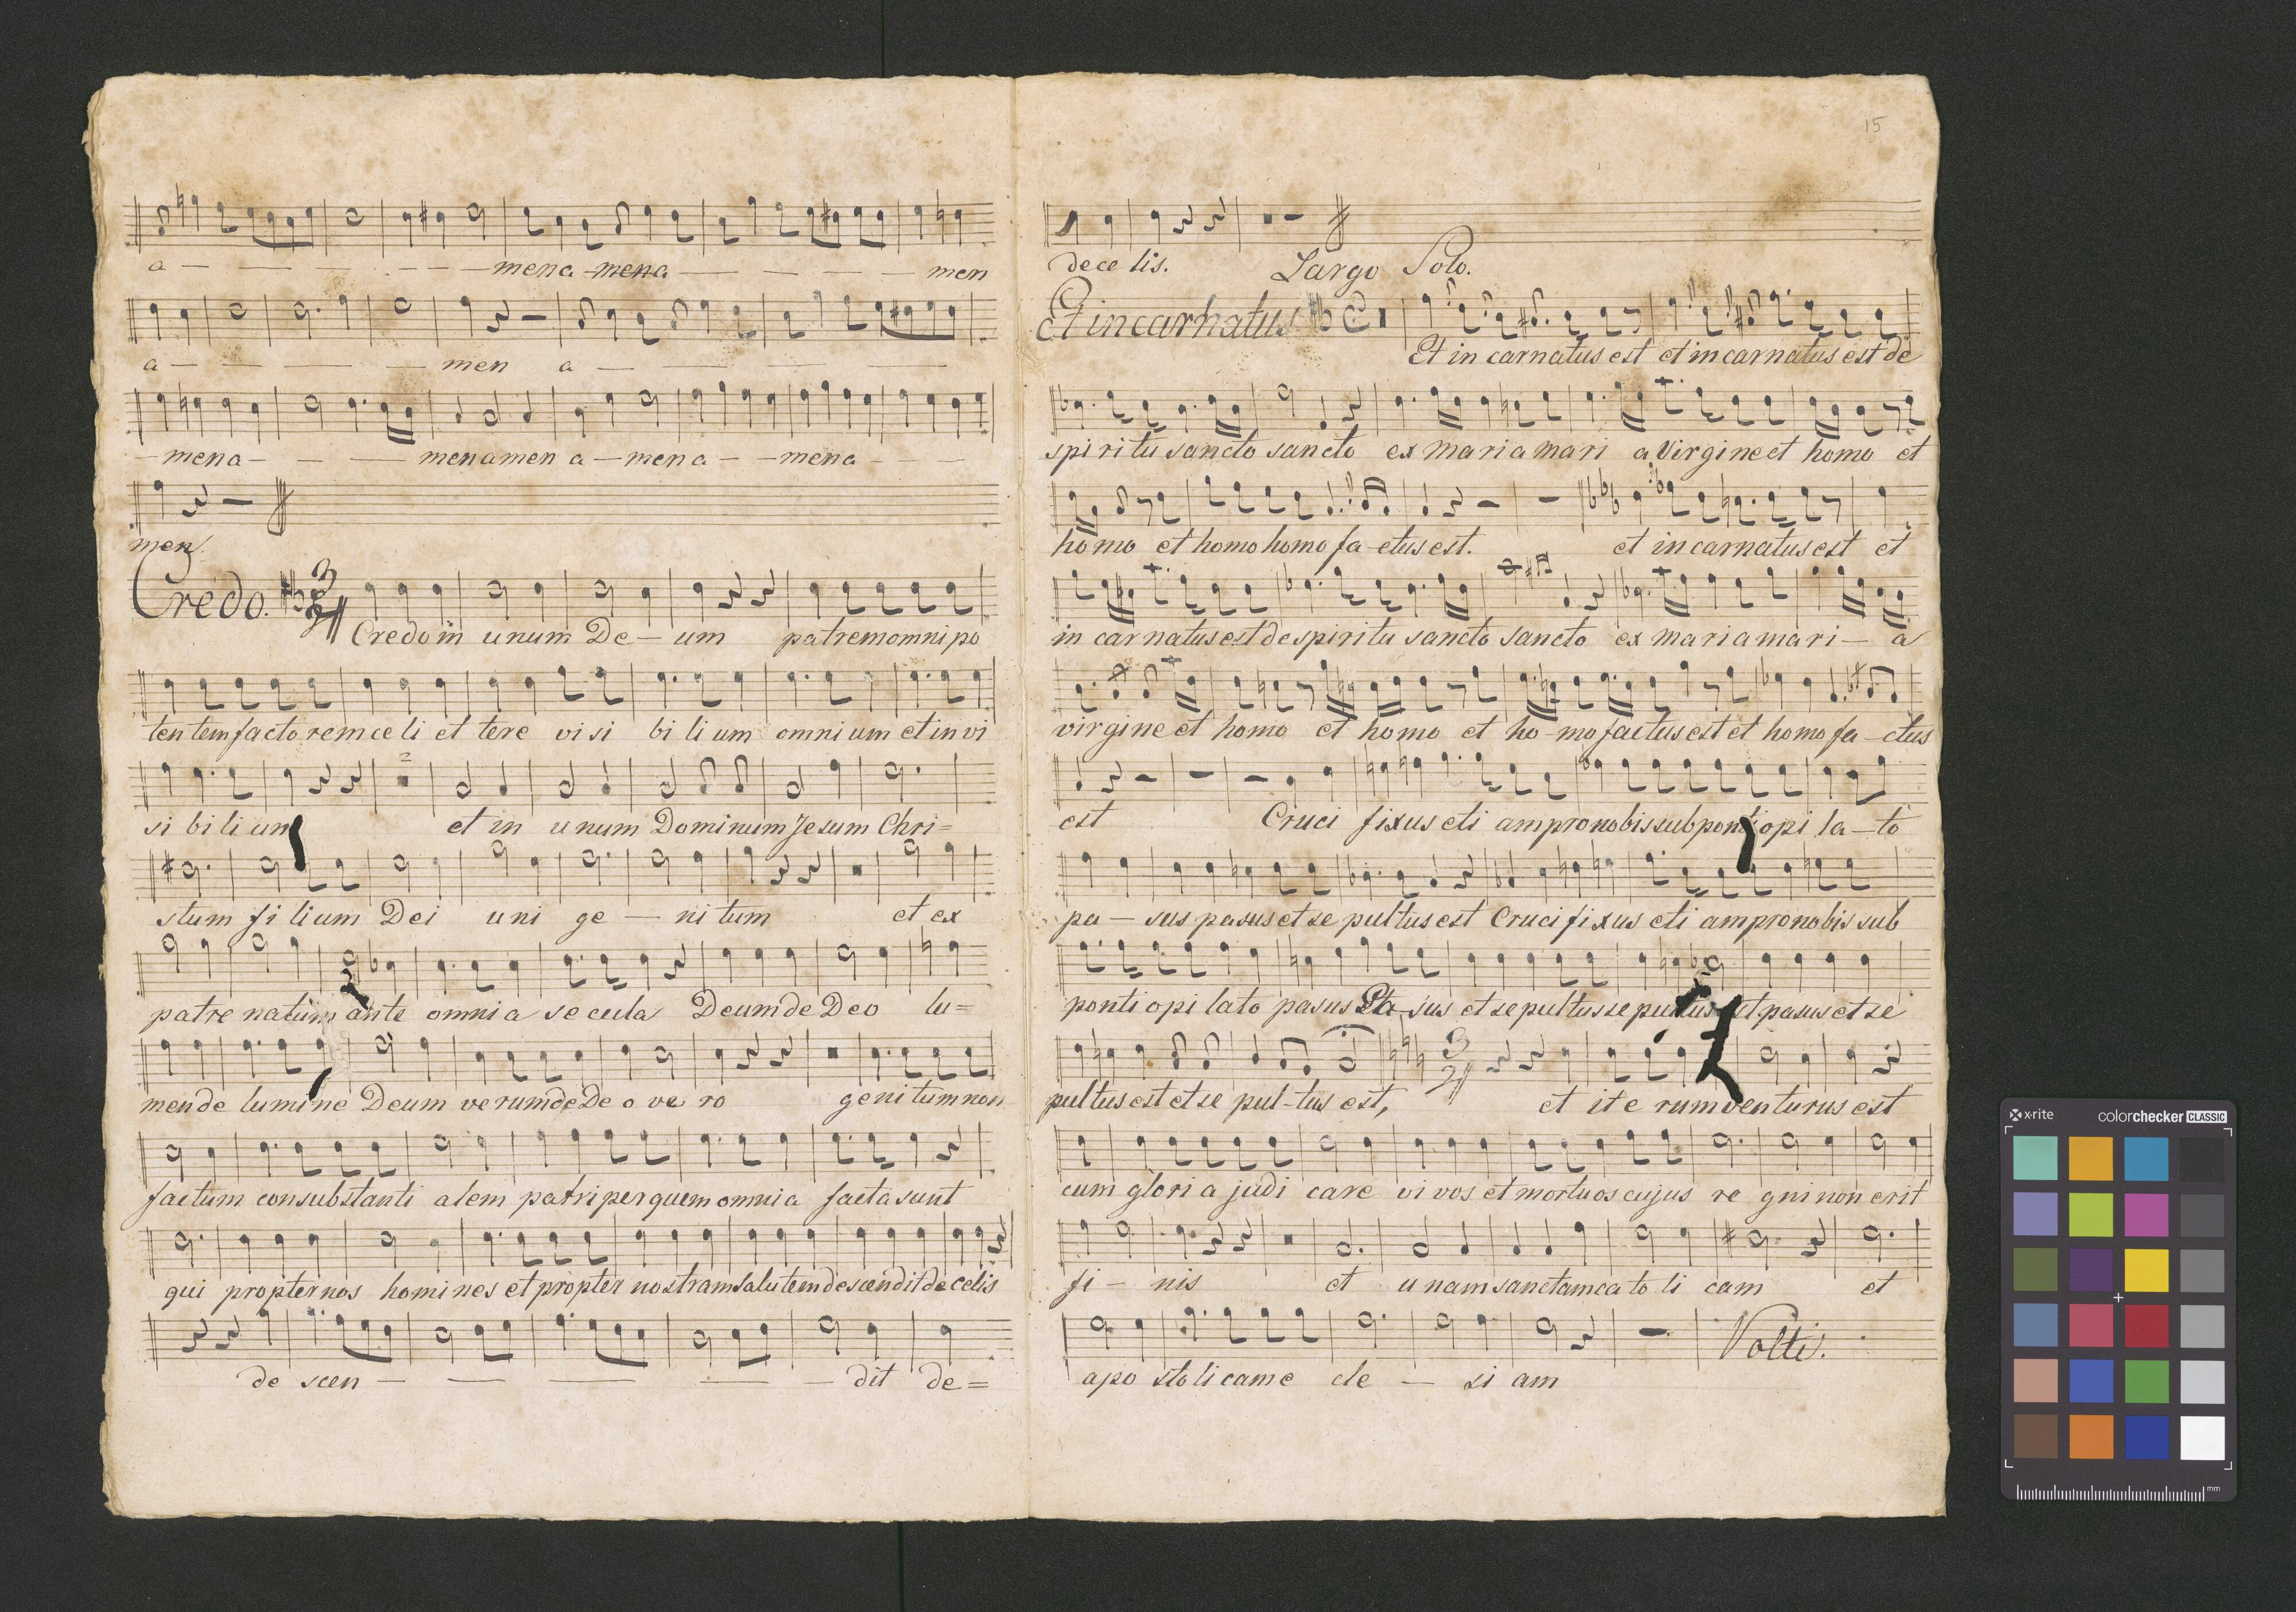 a — — — - - — mena mena — — — - men
a — — — — men a — — — —
- mena - — - — menamen a - mena - - mena - —
men.
Credo. 3
Credo in unum De — um patrem omnipo
tentem factorem celi et tere visi bilium omnium et in vi
2
si bilium et in unum Dominum Jesum Chri=
stum filium Dei uni ge — nitum et ex
patre natum ante omnia secula Deum de Deo lu=
men de lumine Deum verum de Deo vero genitum non
factum consubstanti alem patri per quem omnia facta sunt
qui propter nos homines et propter nostram salutem descendit de celis
de scen - — — — - dit de=
15
de celis. Largo Solo.
Et incarnatus
Et in carnatus est et in carnatus est de
spiritu sancto sancto ex maria mari a Virgine et homo et
homo et homo homo fa-ctus est. et in carnatus est et
in carnatus est de spiritu sancto sancto ex maria mari — a
virgine et homo et homo et ho-mo factus est et homo fa-ctus
est Cruci fixus eti am pro nobis sub ponti o pi la-to
pa — sus pasus et se pultus est Crucifixus eti am pro nobis sub
ponti o pi lato pasus Pa-sus et sepultus sepultus et pasus et se
pultus est et se pul-tus est, 3 et ite rum venturus est
cum gloria judi care vivos et mortuos cujus re gni non erit
fi - nis et unam sanctam ca to li cam et
apo stolicam e cle — si am Volti.
x·rite colorchecker CLASSIC
mm